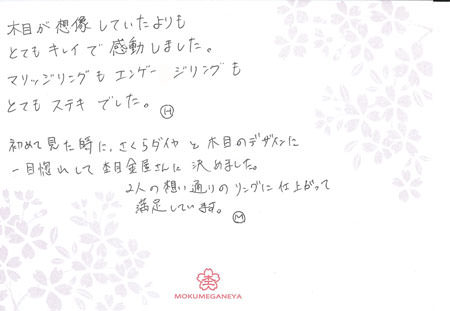 木目が想像していたよりも
とてもキレイで感動しました。
マリッジリングもエンゲージリングも
とてもステキでした。Ⓗ
初めて見た時に、さくらダイヤと木目のデザインに
一目惚れして杢目金屋さんに決めました。
2人の想い通りのリングに仕上がって
満足しています。Ⓜ
MOKUMEGANEYA